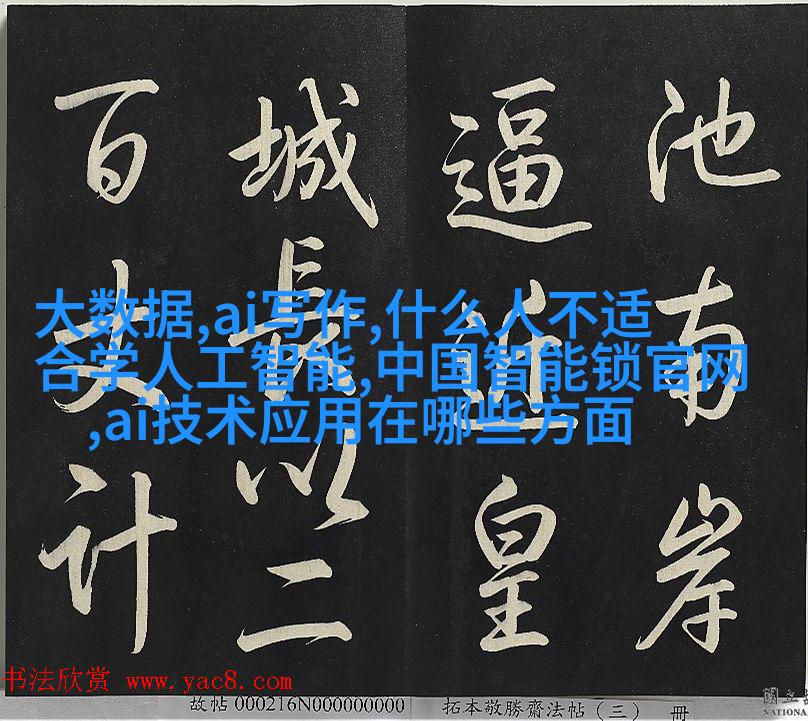 池南岸
逼近皇
城長以二
百丈计
大数据,ai写作,什么人不适
合学人工智能,中国智能锁官网
,ai技术应用在哪些方面
书法欣赏 www.yac8.com
故帖 000216N000000000
拓本敬勝齋法帖（三） 冊
國立
NATIONA